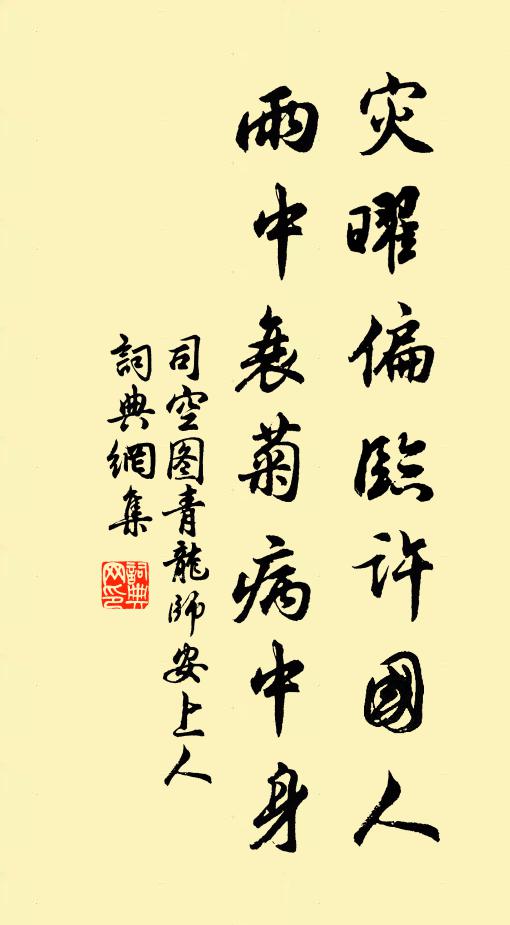 灾曜偏臨许國人
雨中衰菊病中身
司空图青龍師安上人
詞典網集
詞典
网印